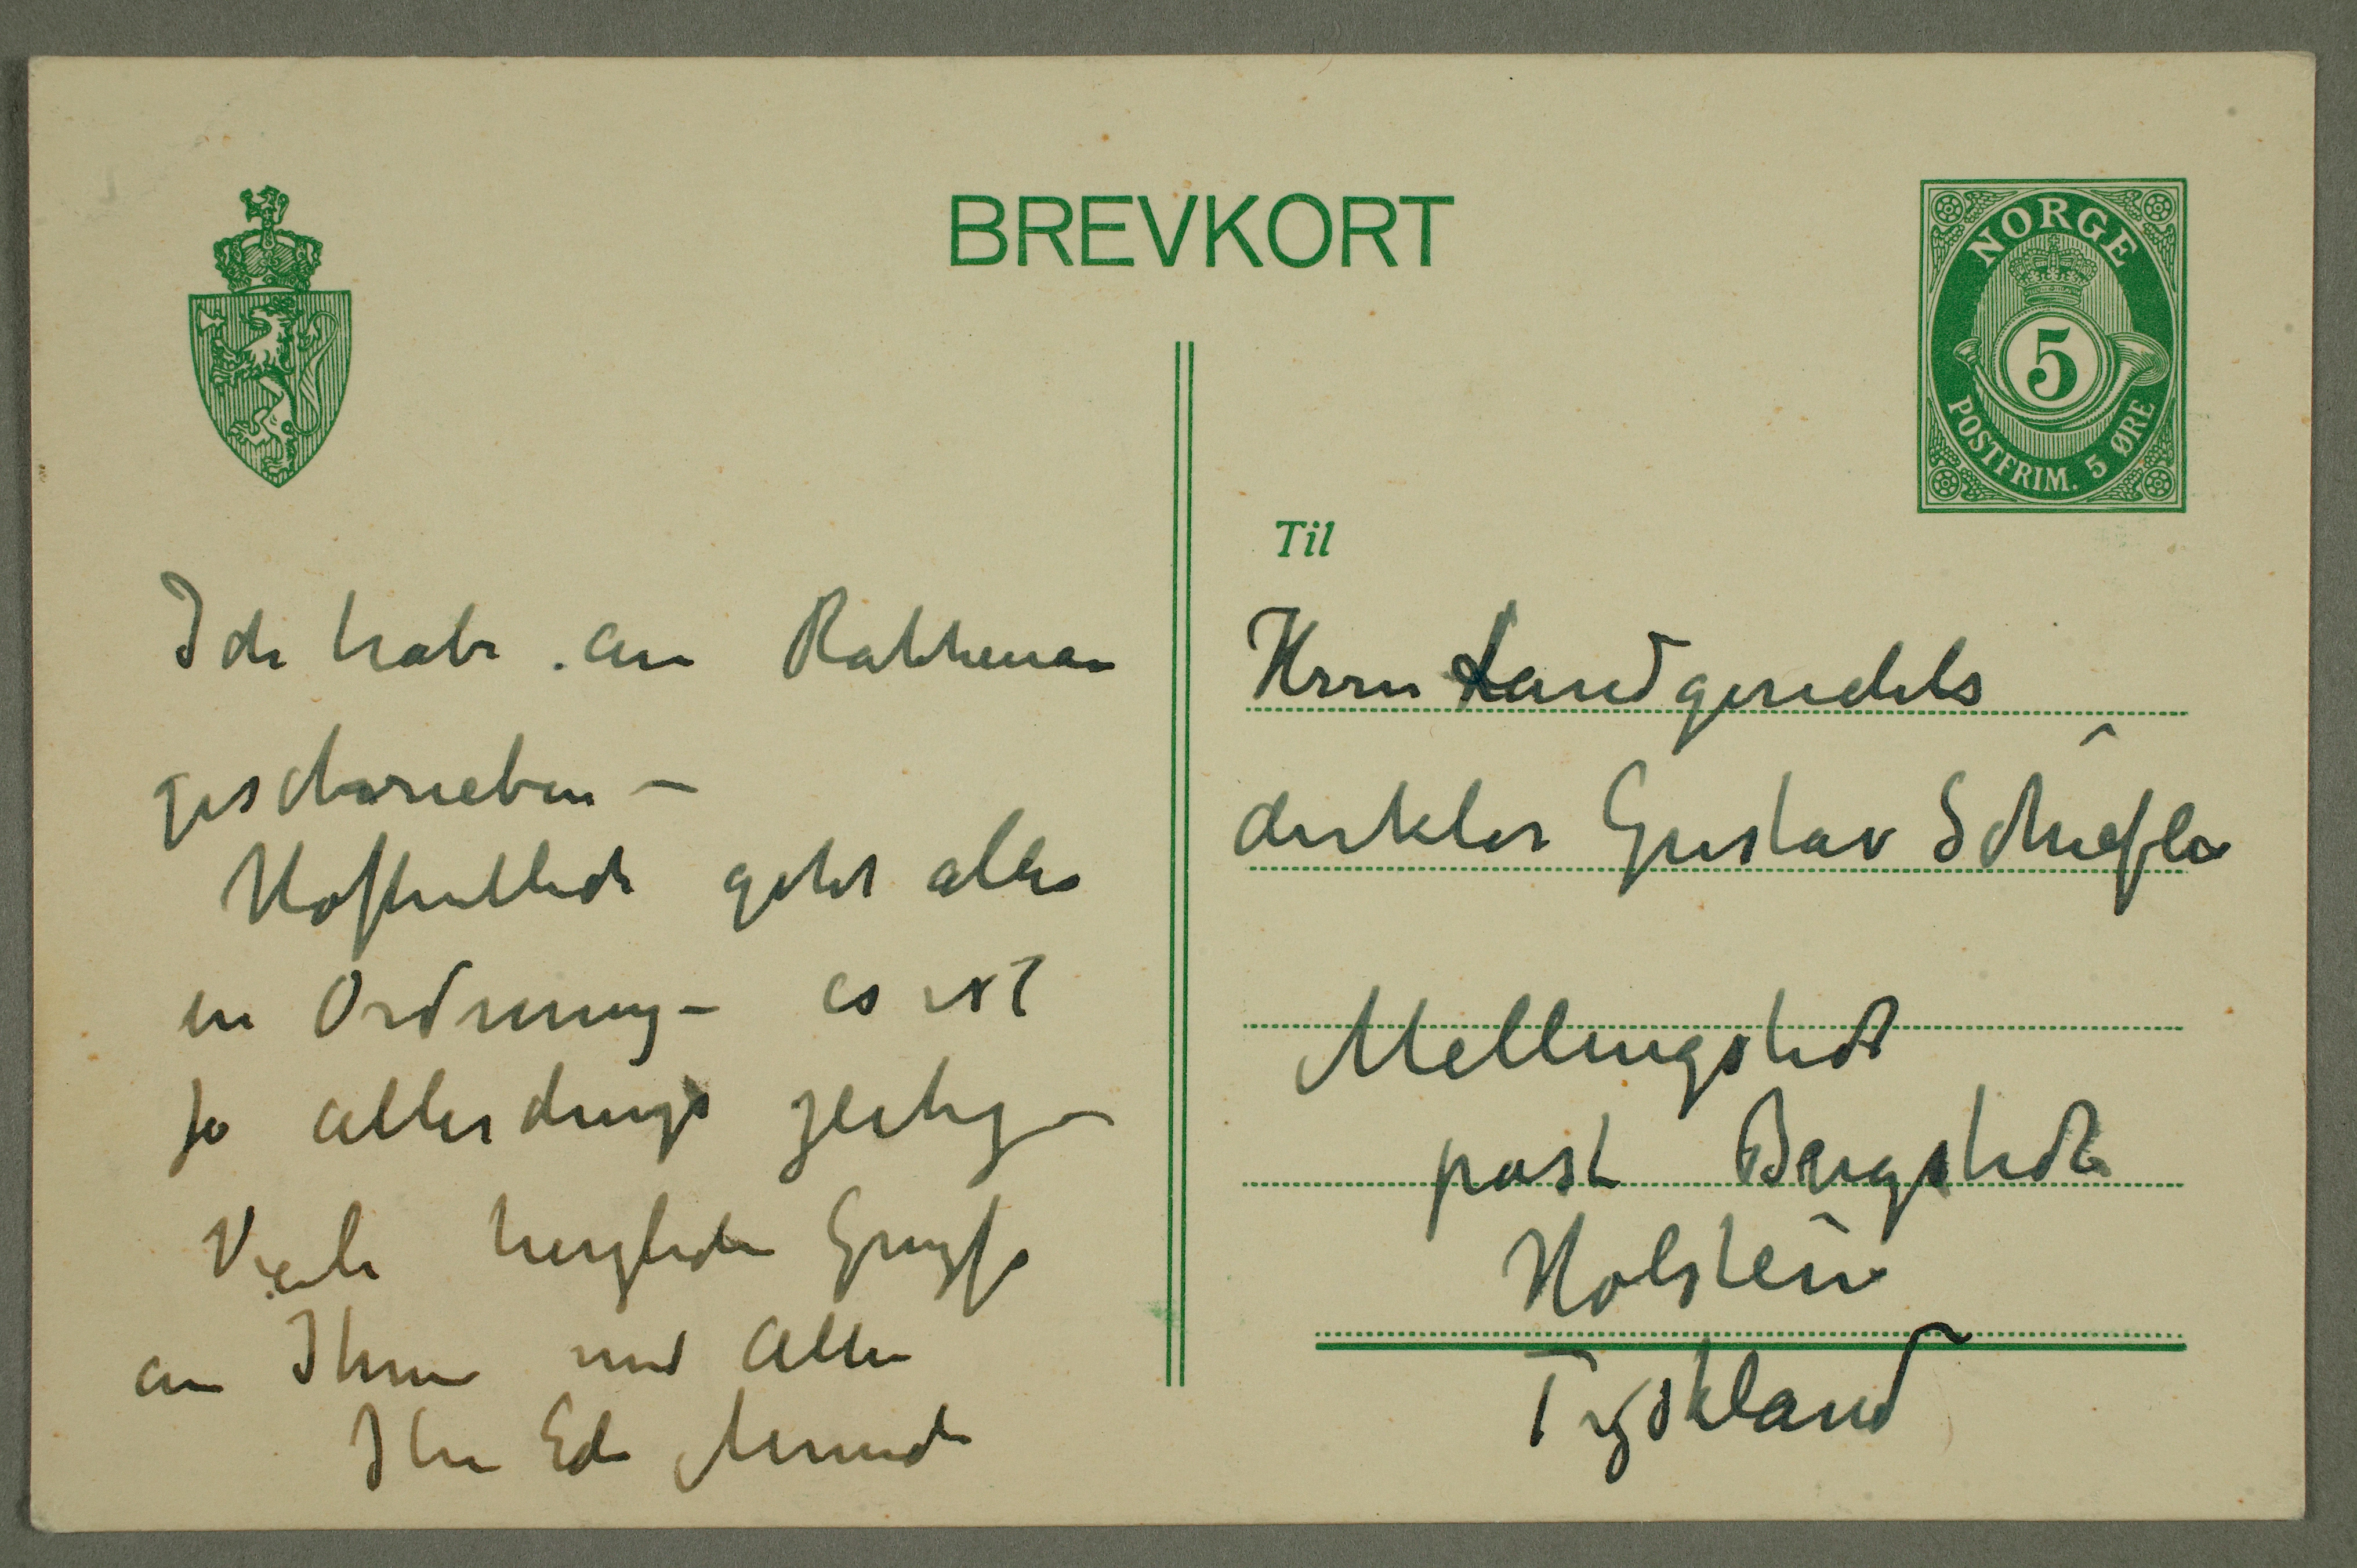 BREVKORT
NORGE
5
POSTFRIM. 5 ØRE
Ich habe an Rathenau
geschrieben –
Hoffentlich geht alles
in Ordnung – es ist
ja allerdings
Viele herzliche Grüsse
an Ihnen und Alle
Ihr Edv Munch
Til
Herrn Landgerichts
direktor Gustav Schiefler
Mellingstedt
post Bergstedt
Holstein
Tyskland